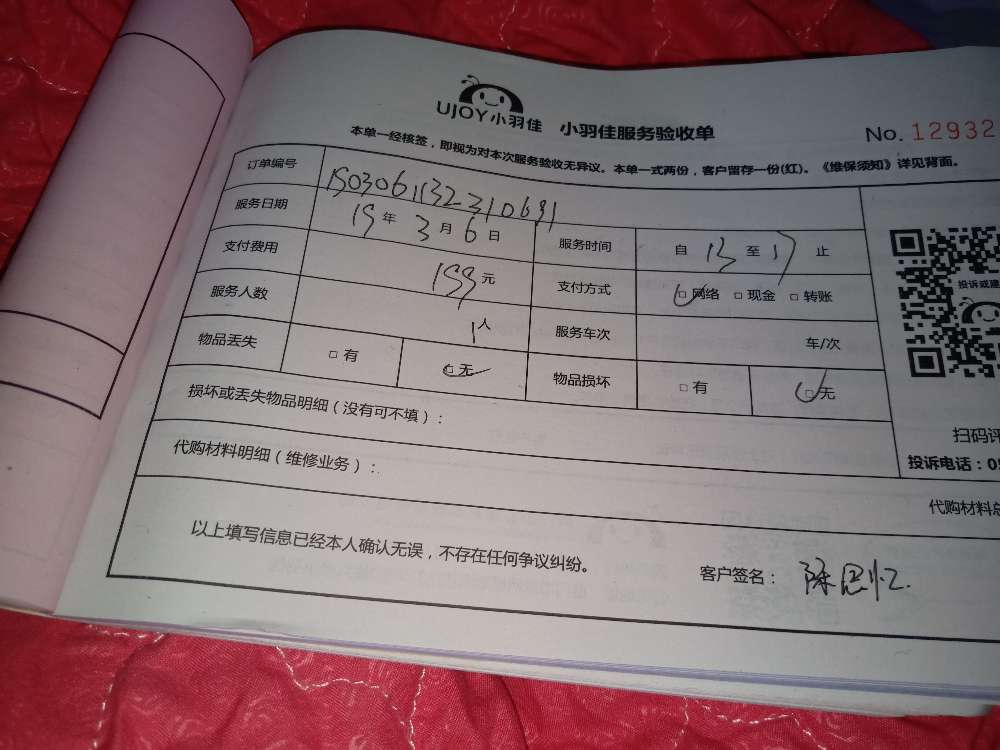 UJOY小羽佳 小羽佳服务验收单
No. 12932
本单一经核签，即视为对本次服务验收无异议。本单一式两份，客户留存一份(红)。《维保须知》详见背面。
订单编号
服务日期 19年 3月 6日 服务时间 自 13 至 17 止
支付费用 199元 支付方式 □网络 □现金 □转账
服务人数 1人 服务车次 车/次
物品丢失 □有 □无 物品损坏 □有 □无
投诉或建
损坏或丢失物品明细（没有可不填）：
扫码评
投诉电话：0
代购材料明细（维修业务）：
代购材料总
以上填写信息已经本人确认无误，不存在任何争议纠纷。
客户签名：